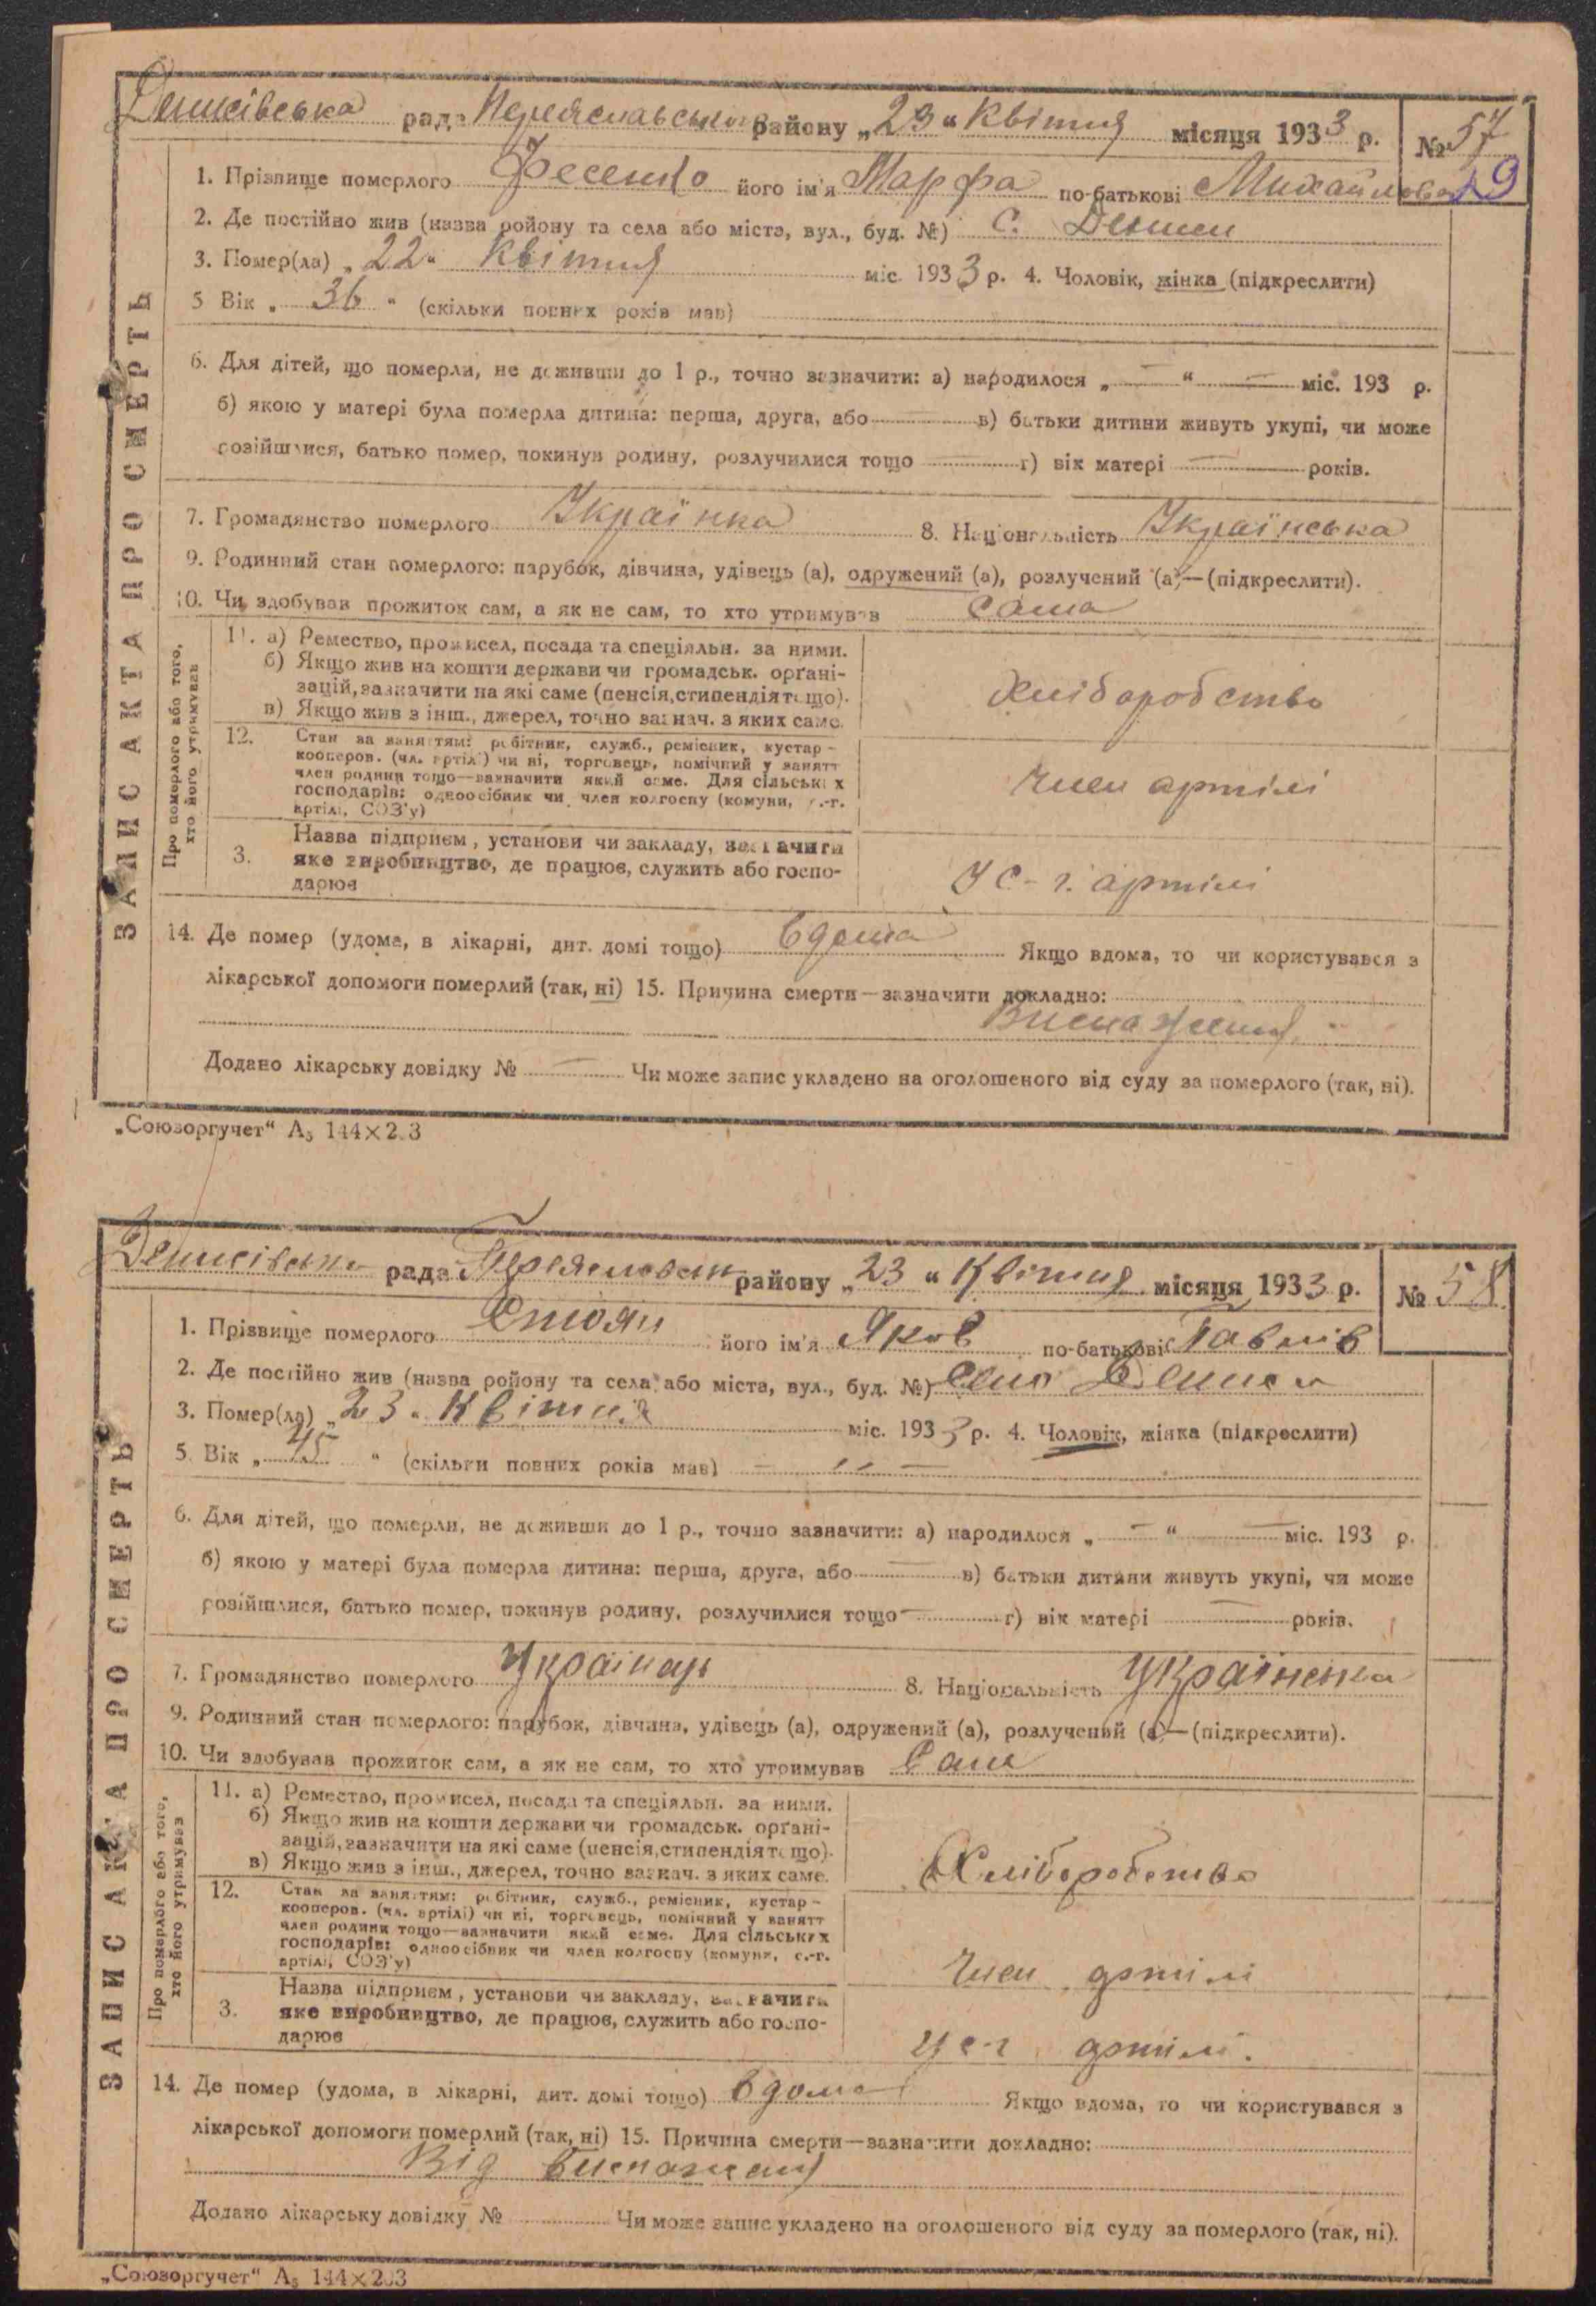 Денисівська рада Переяславського району „23“ Квітня місяця 1933 р. № 57
29
1. Прізвище померлого Фесенко його ім'я Марфа по-батькові Михайлова
2. Де постійно жив (назва ройону та села або міста, вул., буд. №) С. Дениси
3. Помер(ла) „22“ Квітня міс. 1933 р. 4. Чоловік, жінка (підкреслити)
5 Вік „ 36 “ (скільки повних років мав)
6. Для дітей, що померли, не доживши до 1 р., точно зазначити: а) народилося „ — “ — міс. 193 р.
б) якою у матері була померла дитина: перша, друга, або — в) батьки дитини живуть укупі, чи може
розійшлися, батько помер, покинув родину, розлучилися тощо — г) вік матері — років.
7. Громадянство померлого Українка 8. Національність Українська
9. Родинний стан померлого: парубок, дівчина, удівець (а), одружений (а), розлучений (а)—(підкреслити).
10. Чи здобував прожиток сам, а як не сам, то хто утримував сама
ЗАПИС АКТА ПРО СМЕРТЬ
Про померлого або того, хто його утримував
11. а) Ремество, промисел, посада та спеціяльн. за ними.
б) Якщо жив на кошти держави чи громадськ. орґані-
зацій, зазначити на які саме (пенсія, стипендія тощо).
в) Якщо жив з інш., джерел, точно зазнач. з яких саме.
Хліборобство
12. Стан за заняттям: робітник, служб., ремісник, кустар –
кооперов. (чл. артілі) чи ні, торговець, помічний у занятт
член родини тощо—зазначити який саме. Для сільських
господарів: одноосібник чи член колгоспу (комуни, с.-г.
артілі, СОЗ'у)
Член артілі
3. Назва підприєм, установи чи закладу, зазначити
яке виробництво, де працює, служить або госпо-
дарює
У с-г. артілі
14. Де помер (удома, в лікарні, дит. домі тощо) вдома Якщо вдома, то чи користувався з
лікарської допомоги померлий (так, ні) 15. Причина смерти—зазначити докладно:
Виснаження
Додано лікарську довідку № — Чи може запис укладено на оголошеного від суду за померлого (так, ні).
„Союзоргучет“ А₅ 144×203
Денисівська рада Переяславськ району „23“ Квітня місяця 1933 р. № 58
1. Прізвище померлого Стоян його ім'я Яків по-батькові Павлів
2. Де постійно жив (назва ройону та села або міста, вул., буд. №) село Дениси
3. Помер(ла) „23“ Квітня міс. 1933 р. 4. Чоловік, жінка (підкреслити)
5. Вік „ 45 “ (скільки повних років мав) — „ —
6. Для дітей, що померли, не доживши до 1 р., точно зазначити: а) народилося „ — “ — міс. 193 р.
б) якою у матері була померла дитина: перша, друга, або — в) батьки дитини живуть укупі, чи може
розійшлися, батько помер, покинув родину, розлучилися тощо — г) вік матері — років.
7. Громадянство померлого Українець 8. Національність Українська
9. Родинний стан померлого: парубок, дівчина, удівець (а), одружений (а), розлучений (а)—(підкреслити).
10. Чи здобував прожиток сам, а як не сам, то хто утримував Сам
ЗАПИС АКТА ПРО СМЕРТЬ
Про померлого або того, хто його утримував
11. а) Ремество, промисел, посада та спеціяльн. за ними.
б) Якщо жив на кошти держави чи громадськ. орґані-
зацій, зазначити на які саме (пенсія, стипендія тощо).
в) Якщо жив з інш., джерел, точно зазнач. з яких саме.
Хліборобство
12. Стан за заняттям: робітник, служб., ремісник, кустар –
кооперов. (чл. артілі) чи ні, торговець, помічний у занятт
член родини тощо—зазначити який саме. Для сільських
господарів: одноосібник чи член колгоспу (комуни, с.-г.
артілі, СОЗ'у)
Член артілі
3. Назва підприєм, установи чи закладу, зазначити
яке виробництво, де працює, служить або госпо-
дарює
У с-г артілі.
14. Де помер (удома, в лікарні, дит. домі тощо) вдома Якщо вдома, то чи користувався з
лікарської допомоги померлий (так, ні) 15. Причина смерти—зазначити докладно:
Від виснаження
Додано лікарську довідку № Чи може запис укладено на оголошеного від суду за померлого (так, ні).
„Союзоргучет“ А₅ 144×203